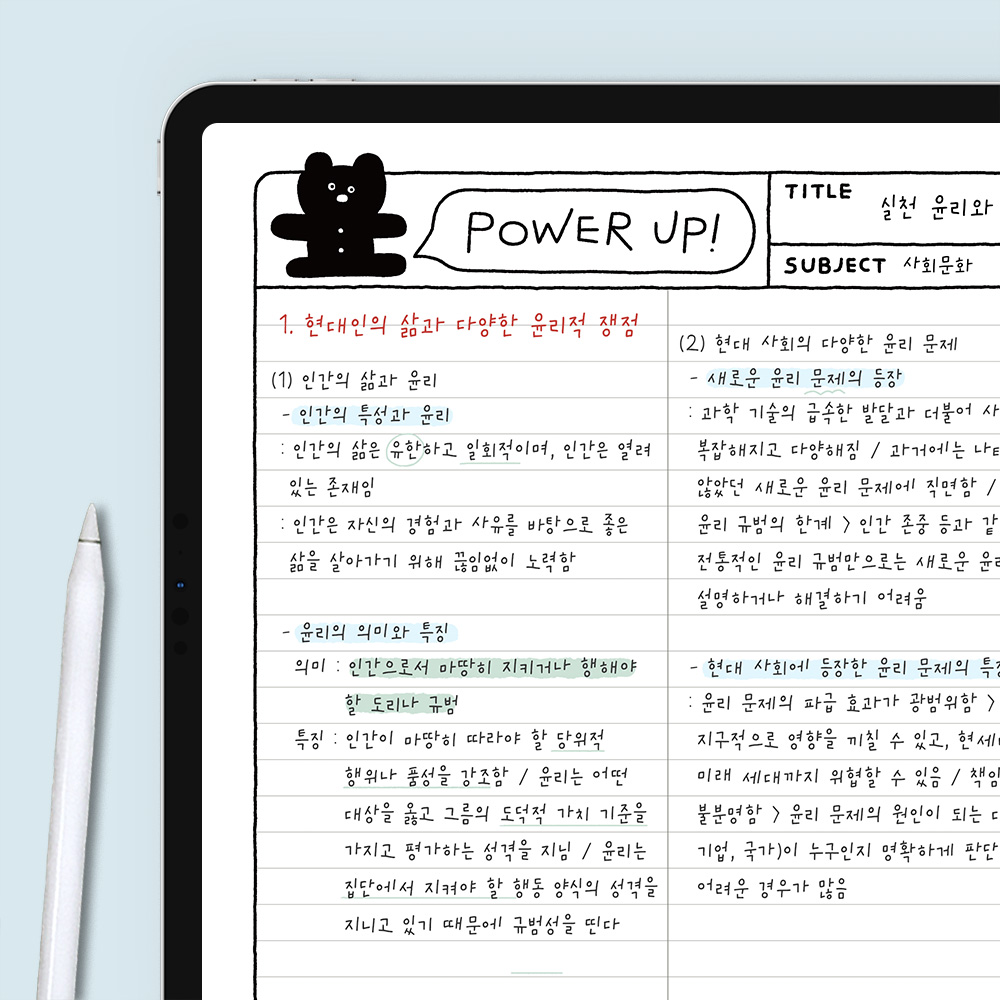 POWER UP!
TITLE 실천 윤리와
SUBJECT 사회문화
1. 현대인의 삶과 다양한 윤리적 쟁점
(1) 인간의 삶과 윤리
- 인간의 특성과 윤리
: 인간의 삶은 유한하고 일회적이며, 인간은 열려
있는 존재임
: 인간은 자신의 경험과 사유를 바탕으로 좋은
삶을 살아가기 위해 끊임없이 노력함
- 윤리의 의미와 특징
의미 : 인간으로서 마땅히 지키거나 행해야
할 도리나 규범
특징 : 인간이 마땅히 따라야 할 당위적
행위나 품성을 강조함 / 윤리는 어떤
대상을 옳고 그름의 도덕적 가치 기준을
가지고 평가하는 성격을 지님 / 윤리는
집단에서 지켜야 할 행동 양식의 성격을
지니고 있기 때문에 규범성을 띤다
(2) 현대 사회의 다양한 윤리 문제
- 새로운 윤리 문제의 등장
: 과학 기술의 급속한 발달과 더불어 사
복잡해지고 다양해짐 / 과거에는 나타
않았던 새로운 윤리 문제에 직면함 /
윤리 규범의 한계 > 인간 존중 등과 같
전통적인 윤리 규범만으로는 새로운 윤리
설명하거나 해결하기 어려움
- 현대 사회에 등장한 윤리 문제의 특징
: 윤리 문제의 파급 효과가 광범위함 >
지구적으로 영향을 끼칠 수 있고, 현세대
미래 세대까지 위협할 수 있음 / 책임
불분명함 > 윤리 문제의 원인이 되는
기업, 국가)이 누구인지 명확하게 판단
어려운 경우가 많음